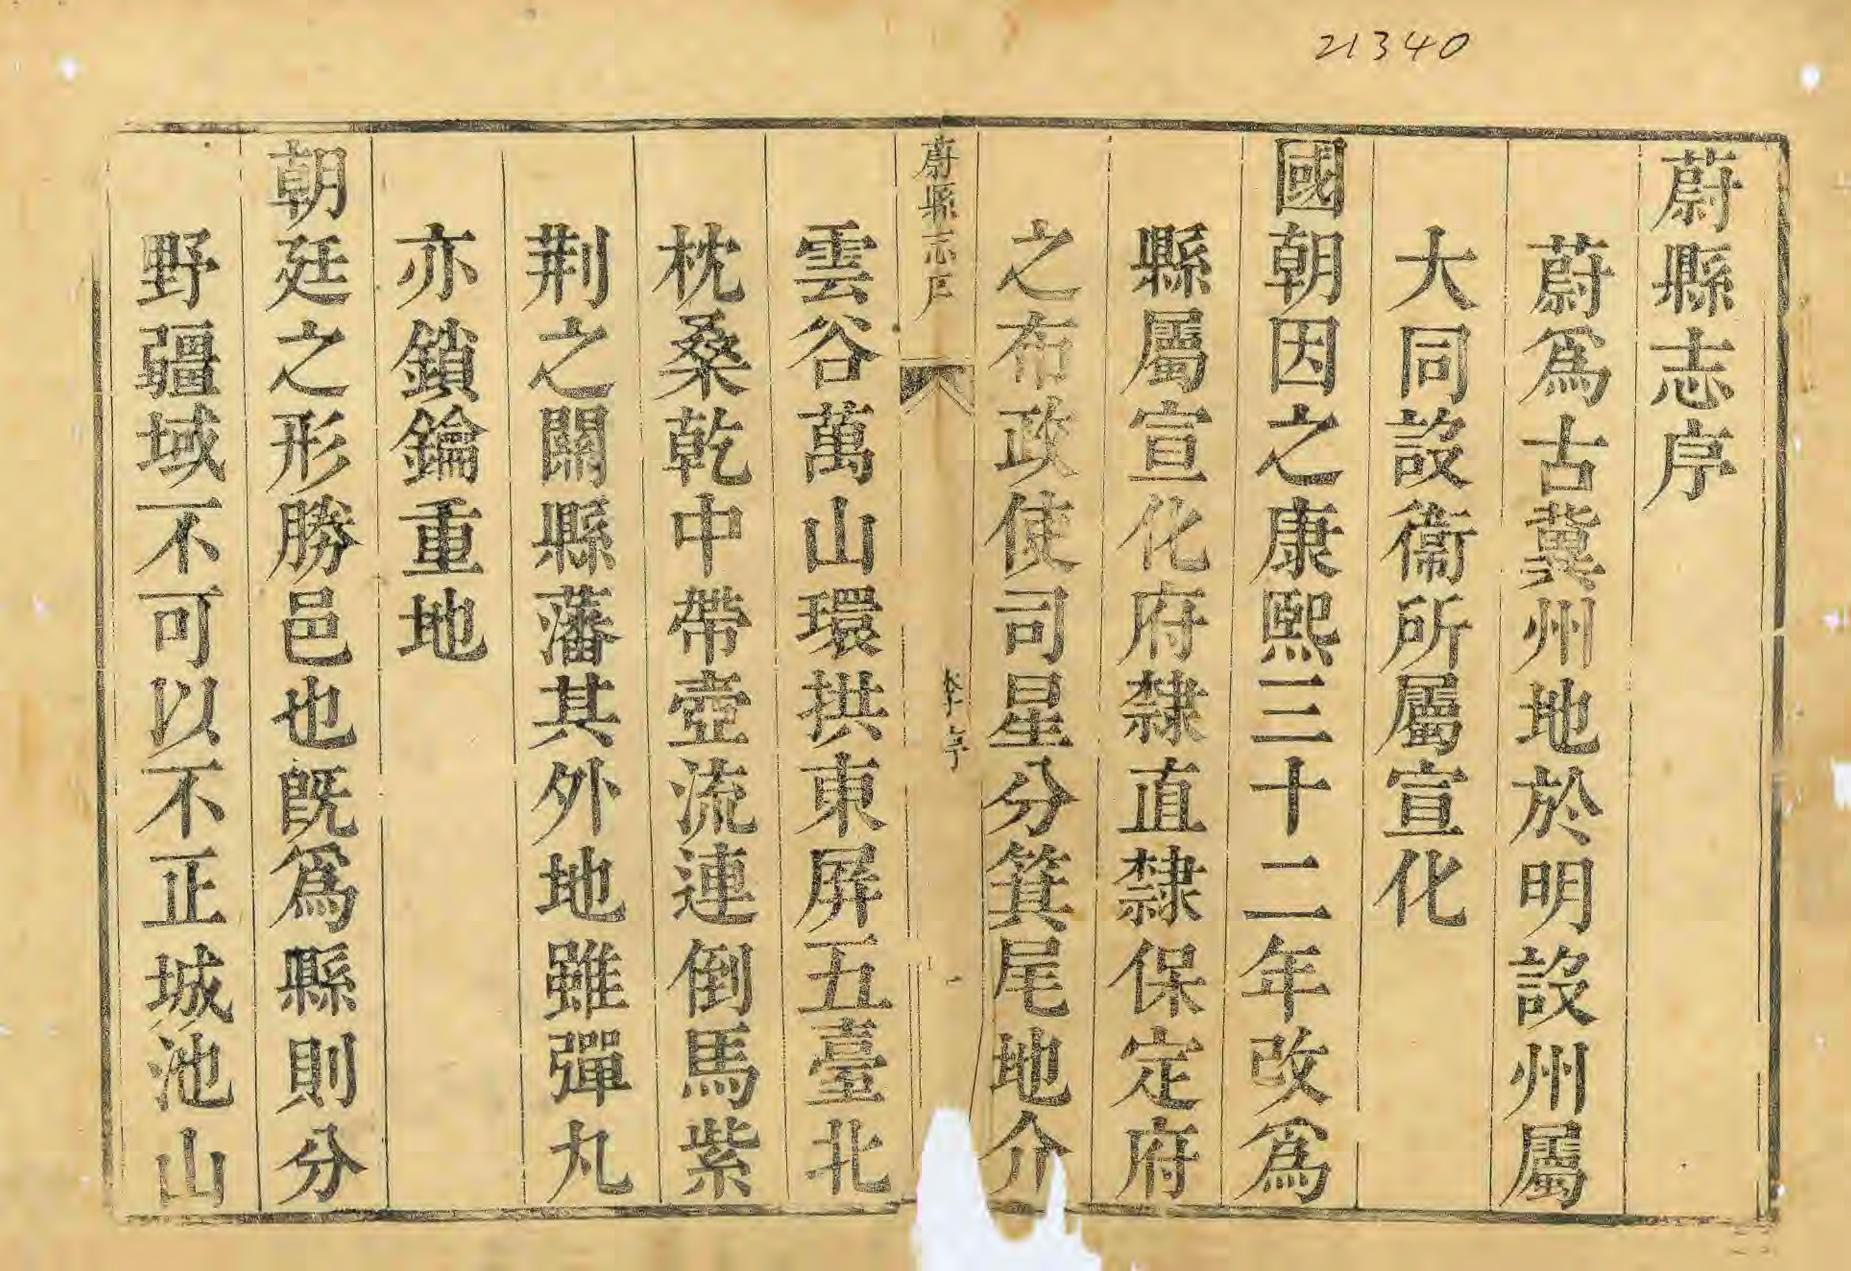 21340
蔚縣志序
蔚爲古冀州地於明設州屬
大同設衞所屬宣化
國朝因之康熙三十二年改爲
縣屬宣化府隸直隸保定府
之布政使司星分箕尾地介
蔚縣志序
李序
一
雲谷萬山環拱東屏五臺北
枕桑乾中帶壺流連倒馬紫
荆之關縣藩其外地雖彈丸
亦鎖鑰重地
朝廷之形勝邑也旣爲縣則分
野疆域不可以不正城池山